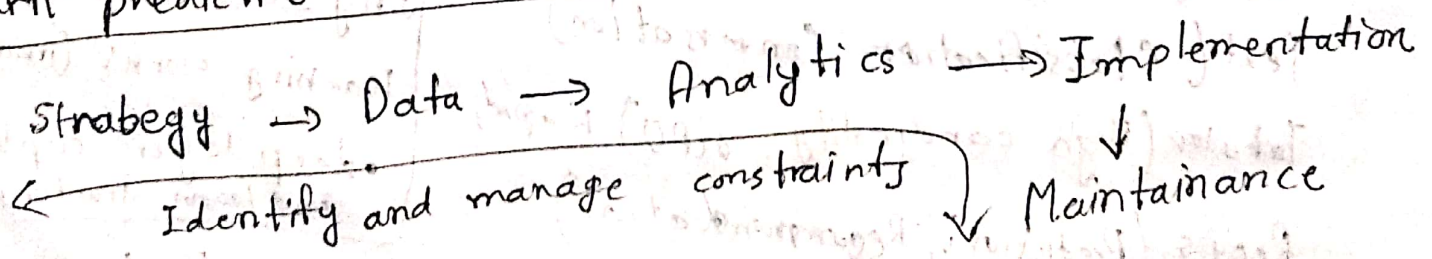 Strabegy → Data → Analytics → Implementation
↓
Identify and manage constraints Maintainance